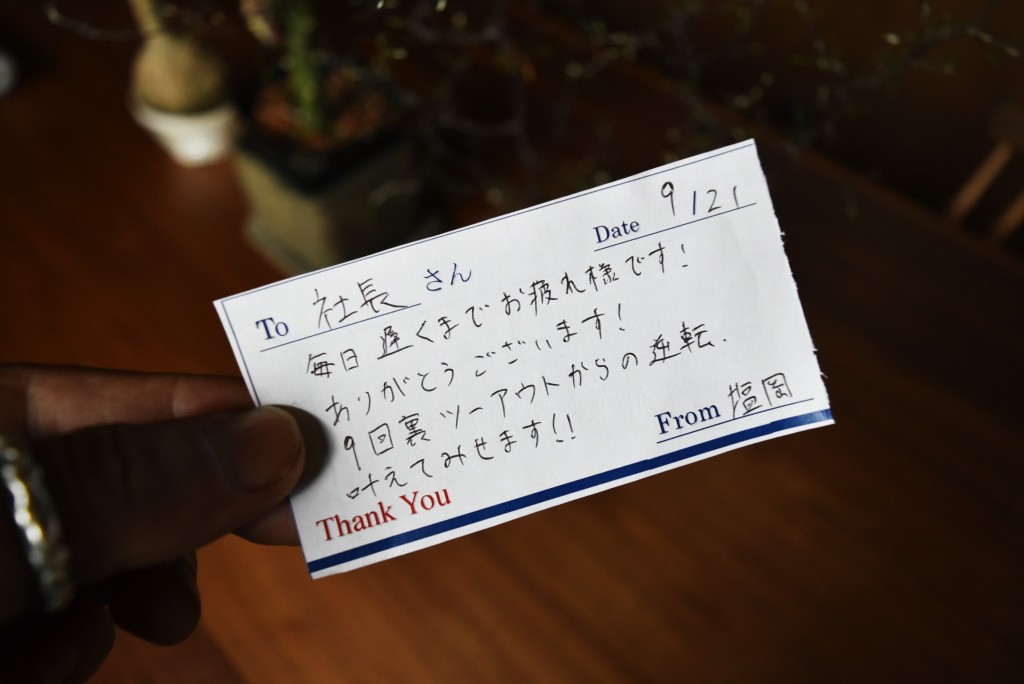 Date 9/21
To 社長 さん
毎日 遅くまでお疲れ様です!
ありがとうございます!
9回裏 ツーアウトからの逆転.
叶えてみせます!!
From 塩岡
Thank You